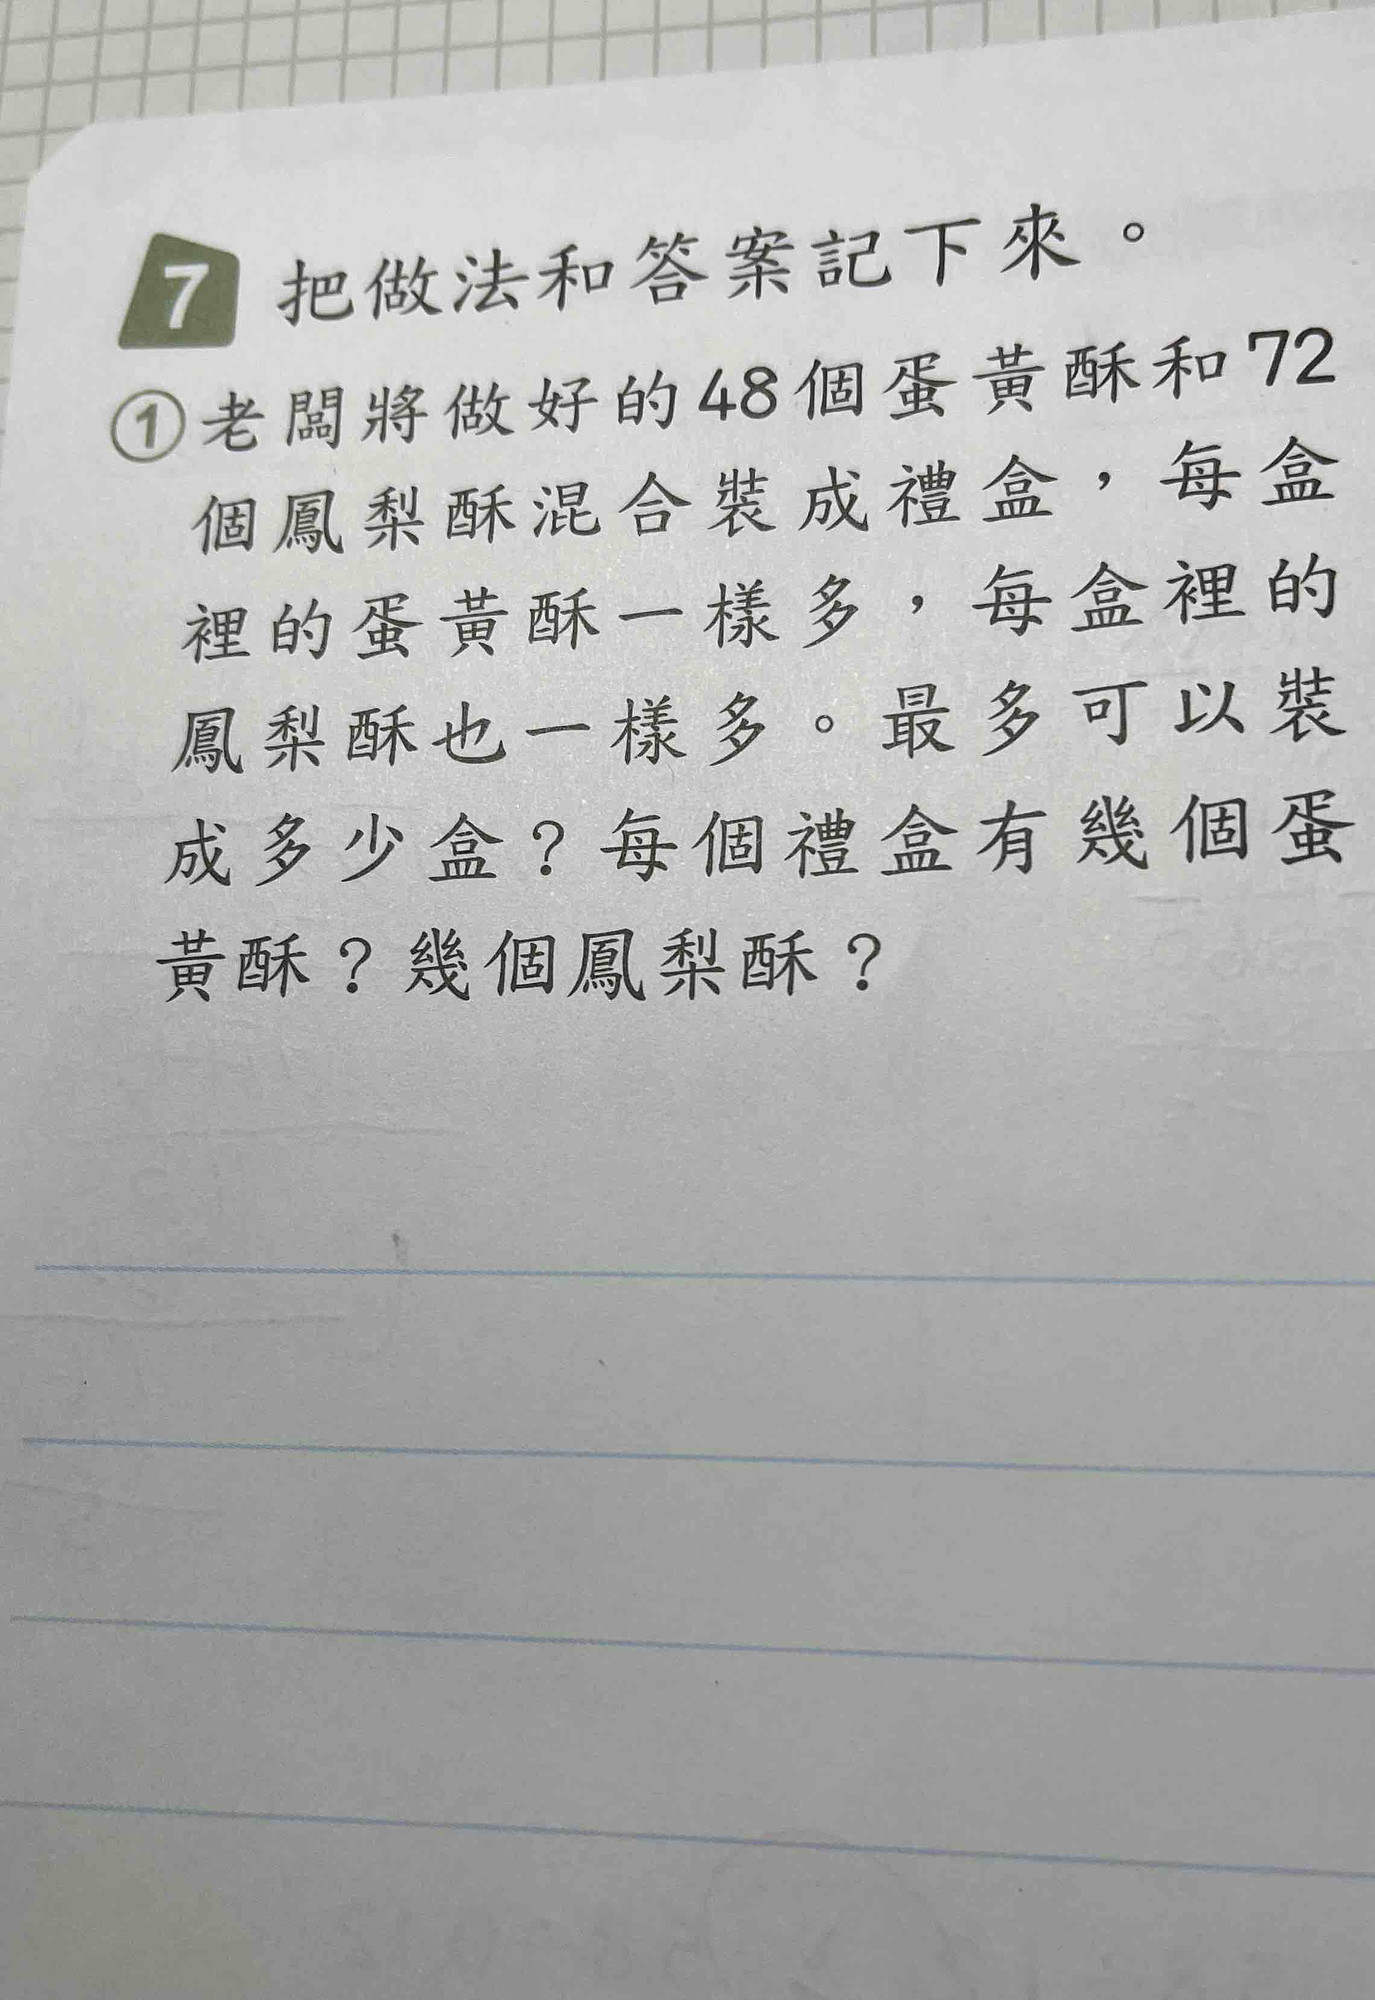 7 把做法和答案記下來。
①老闆將做好的48個蛋黃酥和72
個鳳梨酥混合裝成禮盒，每盒
裡的蛋黃酥一樣多，每盒裡的
鳳梨酥也一樣多。最多可以裝
成多少盒？每個禮盒有幾個蛋
黃酥？幾個鳳梨酥？